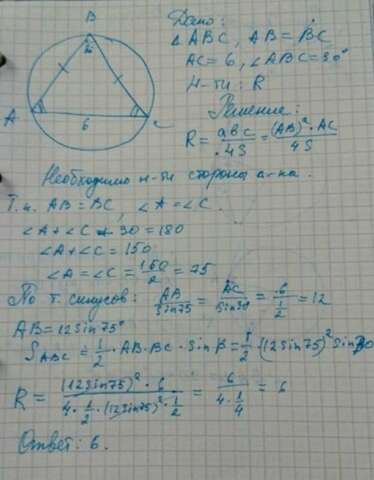 B
30
A
6
C
Дано:
△ABC, AB = BC
AC = 6, ∠ABC = 30°
Н-ти: R
Решение:
R = abc/4S = (AB)²·AC/4S
Необходимо н-ти стороны
Т.к. AB = BC, ∠A = ∠C.
∠A + ∠C + 30 = 180
∠A + ∠C = 150
∠A = ∠C = 150/2 = 75
По т. синусов: AB/sin75 = AC/sin30 = 6/(1/2) = 12
AB = 12sin75°
S_ABC = 1/2 · AB·BC · sinB = 1/2 (12sin75)² sin30
R = (12sin75)²·6 / (4·1/2·(12sin75)²·1/2) = 6/(4·1/4) = 6
Ответ: 6.